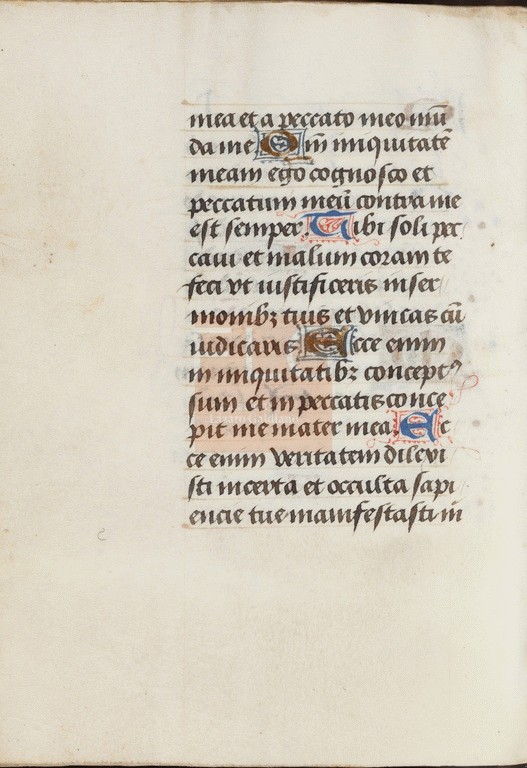 mea et a peccato meo mū
da me Qm̄ iniquitatē
meam ego cognosco et
peccatum meū contra me
est semper Tibi soli pec
caui et malum coram te
feci vt iustificeris in ser
monibꝫ tuis et vincas cū
iudicaris Ecce enim
in iniquitatibꝫ conceptꝰ
sum et in peccatis conce
pit me mater mea Ec
ce enim veritatem dilexi
sti incerta et occulta sapi
encie tue manifestasti m̄